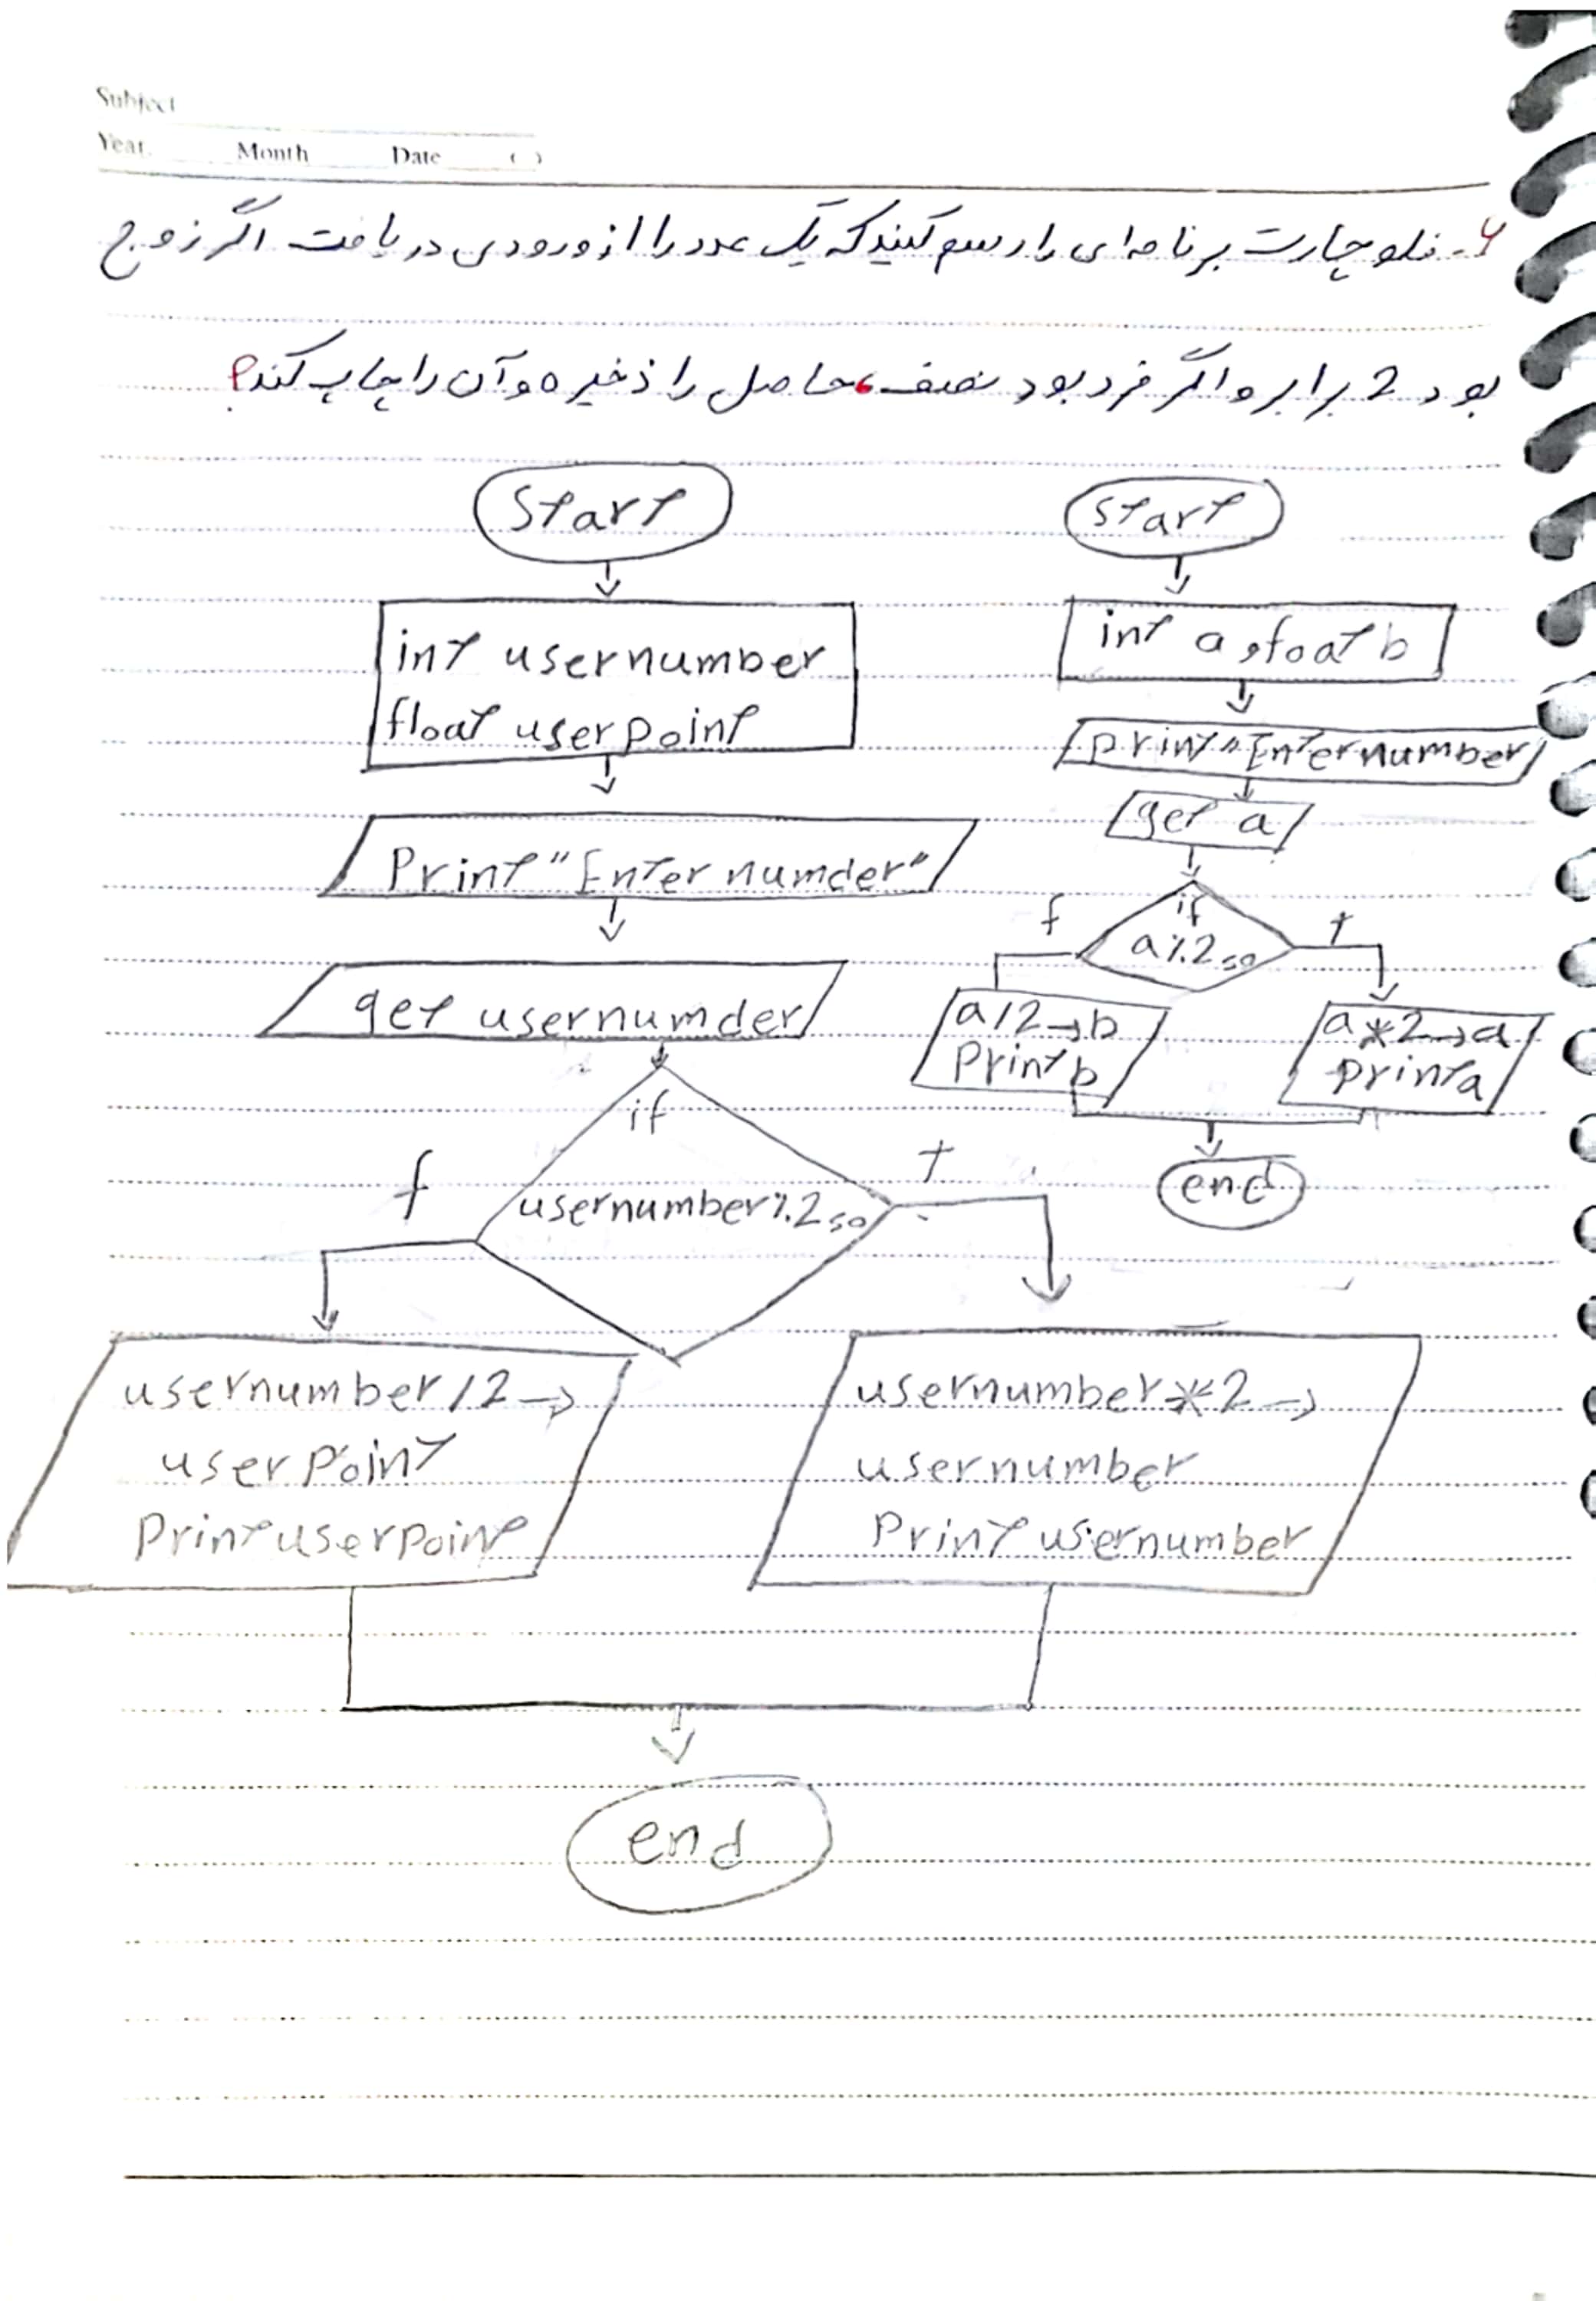 Subject
Year. Month Date ( )
۶- فلوچارت برنامه ای را رسم کنید که یک عدد را از ورودی دریافت اگر زوج
بود 2 برابر و اگر فرد بود نصف، حاصل را ذخیره و آن را چاپ کند؟
Start
int usernumber
float userpoint
Print "Enter numder"
get usernumder
if
usernumber%2=0
f
T
usernumber/2→
userPoint
Print userpoint
usernumber*2→
usernumber
Print usernumber
end
start
int a,foat b
print "Enter number
get a
if
a%2=0
f
T
a/2→b
Print b
a*2→a
print a
end